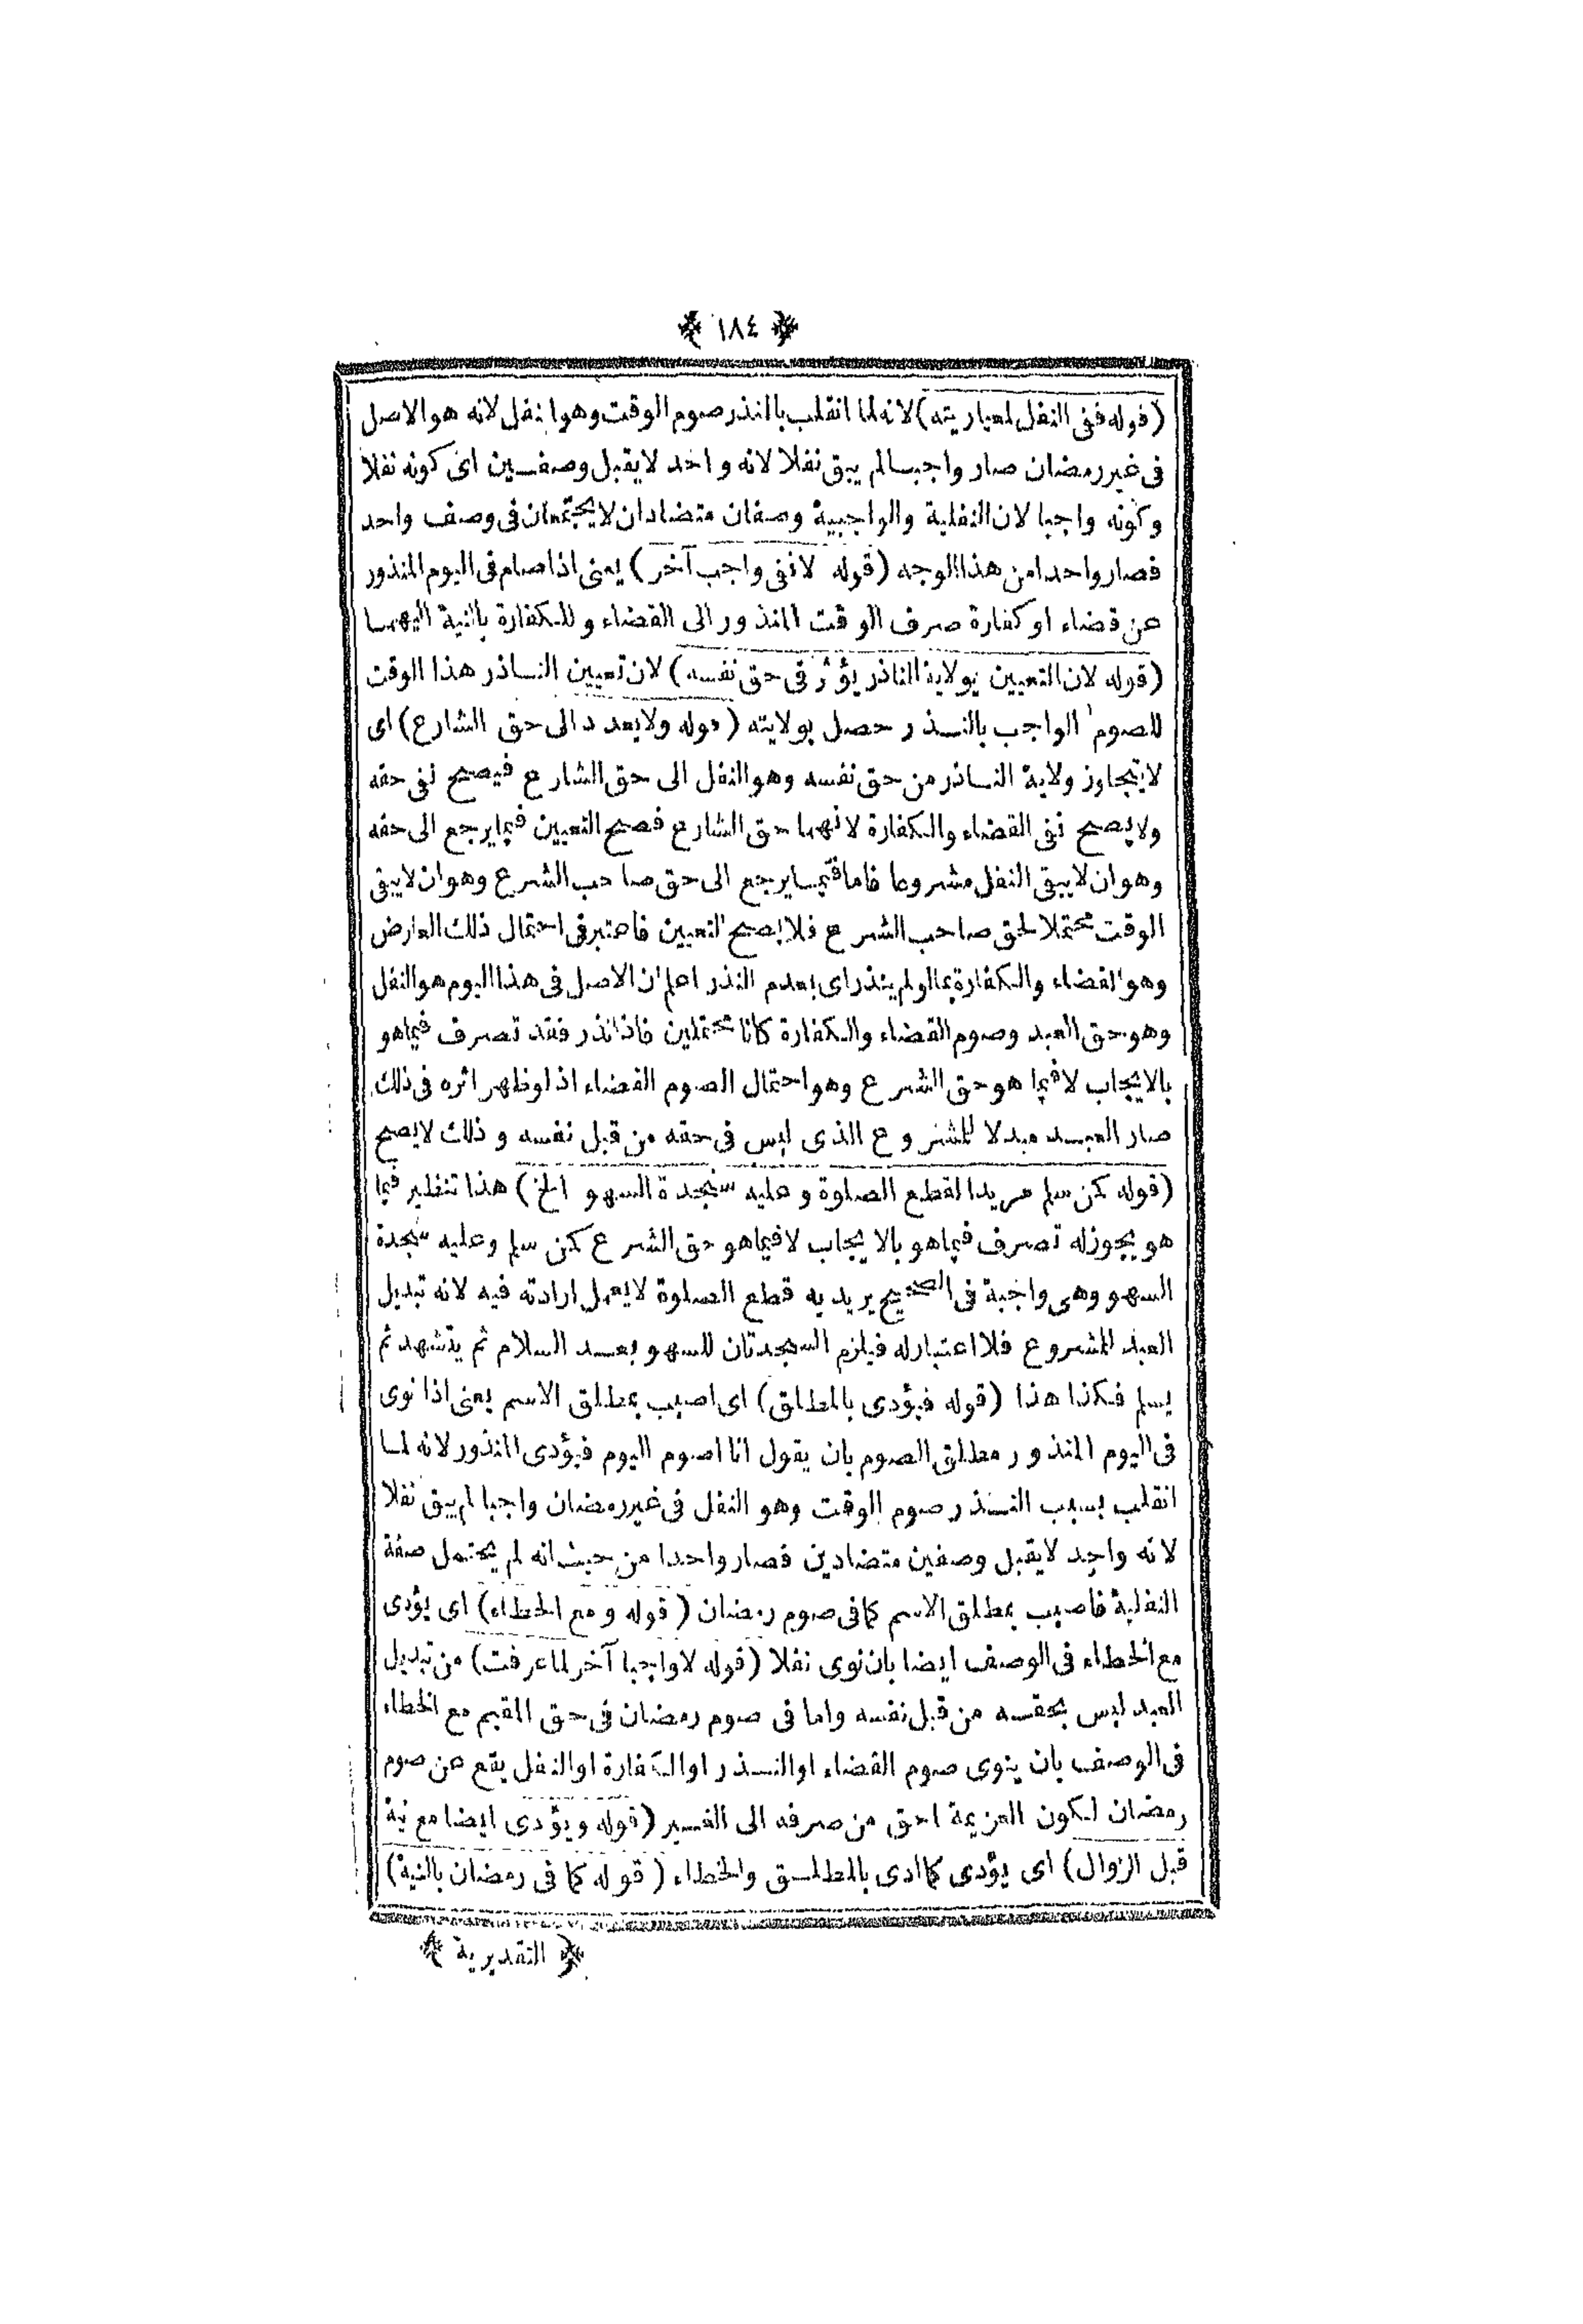 ﴿ ١٨٤ ﴾
(قوله فنفى النفل لمعياريته) لانه لما انقلب بالنذر صوم الوقت وهو النفل لانه هو الاصل
فى غير رمضان صار واجبا لم يبق نفلا لانه واحد لا يقبل وصفين اى كونه نفلا
وكونه واجبا لان النفلية والواجبية وصفان متضادان لا يجتمعان فى وصف واحد
فصار واحدا من هذا الوجه (قوله لا نفى واجب آخر) يعنى اذا صام فى اليوم المنذور
عن قضاء او كفارة صرف الوقت المنذور الى القضاء وللكفارة بالنية اليهما
(قوله لان التعيين بولاية الناذر يؤثر فى حق نفسه) لان تعيين الناذر هذا الوقت
للصوم الواجب بالنذر حصل بولايته (قوله ولا يعدد الى حق الشارع) اى
لا يتجاوز ولاية الناذر من حق نفسه وهو النفل الى حق الشارع فيصح نفى حقه
ولا يصح نفى القضاء والكفارة لانهما حق الشارع فصح التعيين فيما يرجع الى حقه
وهو ان لا يبقى النفل مشروعا فاما فيما يرجع الى حق صاحب الشرع وهو ان لا يبقى
الوقت محتملا لحق صاحب الشرع فلا يصح التعيين فاعتبر فى احتمال ذلك العارض
وهو القضاء والكفارة بمالو لم ينذر اى بعدم النذر اعلم ان الاصل فى هذا اليوم هو النفل
وهو حق العبد وصوم القضاء والكفارة كانا محتملين فاذا نذر فقد تصرف فيما هو
بالايجاب لا فيما هو حق الشرع وهو احتمال الصوم القضاء اذ لو ظهر اثره فى ذلك
صار العبد مبدلا للمشروع الذى ليس فى حقه من قبل نفسه وذلك لا يصح
(قوله كمن سلم مريدا لقطع الصلوة وعليه سجدة السهو الخ) هذا تنظير فيما
هو يجوز له تصرف فيما هو بالايجاب لا فيما هو حق الشرع كمن سلم وعليه سجدة
السهو وهى واجبة فى الصحيح يريد به قطع الصلوة لا يعمل ارادته فيه لانه تبديل
العبد المشروع فلا اعتبار له فيلزم السجدتان للسهو بعد السلام ثم يتشهد ثم
يسلم فكذا هذا (قوله فيؤدى بالمطلق) اى اصيب بمطلق الاسم يعنى اذا نوى
فى اليوم المنذور مطلق الصوم بان يقول انا اصوم اليوم فيؤدى المنذور لانه لما
انقلب بسبب النذر صوم الوقت وهو النفل فى غير رمضان واجبا لم يبق نفلا
لانه واحد لا يقبل وصفين متضادين فصار واحدا من حيث انه لم يحتمل صفة
النفلية فاصيب بمطلق الاسم كما فى صوم رمضان (قوله ومع الخطاء) اى يؤدى
مع الخطاء فى الوصف ايضا بان نوى نفلا (قوله لا واجبا آخر لما عرفت) من تبديل
العبد ليس بحقسه من قبل نفسه واما فى صوم رمضان فى حق المقيم مع الخطاء
فى الوصف بان ينوى صوم القضاء او النذر او الكفارة او النفل يقع عن صوم
رمضان لكون العزيمة احق من صرفه الى الغير (قوله ويؤدى ايضا مع نية
قبل الزوال) اى يؤدى كما ادى بالمطلق والخطاء (قوله كما فى رمضان بالنية)
﴿ التقديرية ﴾